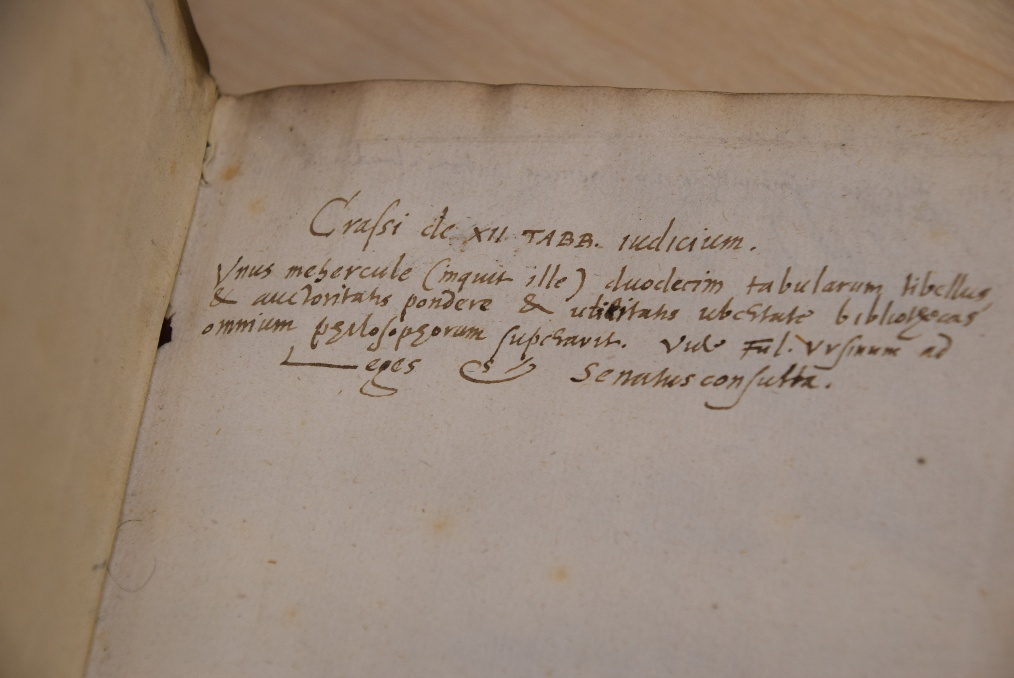 Crassi de XII. TABB. iudicium.
Vnus mehercule (inquit ille) duodecim tabularum libellus
& auctoritatis pondere & utilitatis ubertate bibliothecas
omnium philosophorum superavit. Vide Ful. Vrsinum ad
Leges & Senatusconsulta.